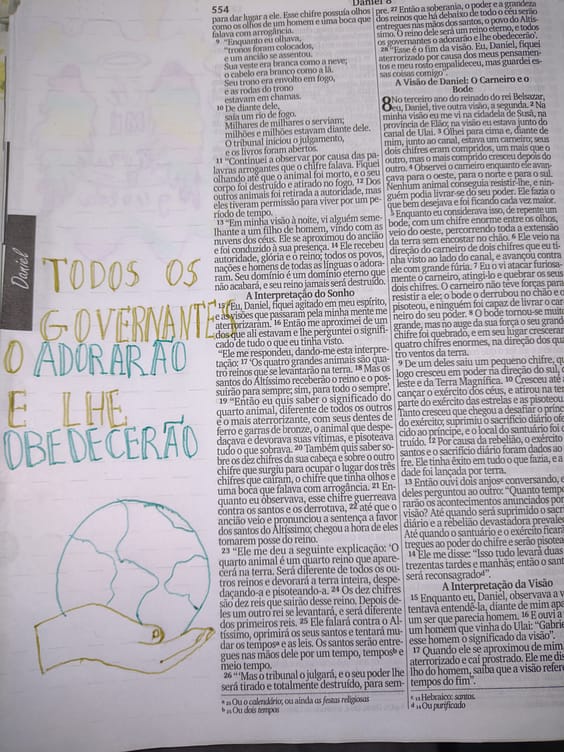 554
Daniel 8
Daniel
TODOS OS
GOVERNANTES
O ADORARÃO
E LHE
OBEDECERÃO
para dar lugar a ele. Esse chifre possuía olhos
como os olhos de um homem e uma boca que
falava com arrogância.
9 "Enquanto eu olhava,
"tronos foram colocados,
e um ancião se assentou.
Sua veste era branca como a neve;
o cabelo era branco como a lã.
Seu trono era envolto em fogo,
e as rodas do trono
estavam em chamas.
10 De diante dele,
saía um rio de fogo.
Milhares de milhares o serviam;
milhões e milhões estavam diante dele.
O tribunal iniciou o julgamento,
e os livros foram abertos.
11 "Continuei a observar por causa das pa-
lavras arrogantes que o chifre falava. Fiquei
olhando até que o animal foi morto, e o seu
corpo foi destruído e atirado no fogo. 12 Dos
outros animais foi retirada a autoridade, mas
eles tiveram permissão para viver por um pe-
ríodo de tempo.
13 "Em minha visão à noite, vi alguém seme-
lhante a um filho de homem, vindo com as
nuvens dos céus. Ele se aproximou do ancião
e foi conduzido à sua presença. 14 Ele recebeu
autoridade, glória e o reino; todos os povos,
nações e homens de todas as línguas o adora-
ram. Seu domínio é um domínio eterno que
não acabará, e seu reino jamais será destruído.
A Interpretação do Sonho
15 "Eu, Daniel, fiquei agitado em meu espírito,
e as visões que passaram pela minha mente me
aterrorizaram. 16 Então me aproximei de um
dos que ali estavam e lhe perguntei o signifi-
cado de tudo o que eu tinha visto.
"Ele me respondeu, dando-me esta interpre-
tação: 17 'Os quatro grandes animais são qua-
tro reinos que se levantarão na terra. 18 Mas os
santos do Altíssimo receberão o reino e o pos-
suirão para sempre; sim, para todo o sempre'.
19 "Então eu quis saber o significado do
quarto animal, diferente de todos os outros
e o mais aterrorizante, com seus dentes de
ferro e garras de bronze, o animal que despe-
daçava e devorava suas vítimas, e pisoteava
tudo o que sobrava. 20 Também quis saber so-
bre os dez chifres da sua cabeça e sobre o outro
chifre que surgiu para ocupar o lugar dos três
chifres que caíram, o chifre que tinha olhos e
uma boca que falava com arrogância. 21 En-
quanto eu observava, esse chifre guerreava
contra os santos e os derrotava, 22 até que o
ancião veio e pronunciou a sentença a favor
dos santos do Altíssimo; chegou a hora de eles
tomarem posse do reino.
23 "Ele me deu a seguinte explicação: 'O
quarto animal é um quarto reino que apare-
cerá na terra. Será diferente de todos os ou-
tros reinos e devorará a terra inteira, despe-
daçando-a e pisoteando-a. 24 Os dez chifres
são dez reis que sairão desse reino. Depois de-
les um outro rei se levantará, e será diferente
dos primeiros reis. 25 Ele falará contra o Al-
tíssimo, oprimirá os seus santos e tentará mu-
dar os tempos a e as leis. Os santos serão entre-
gues nas mãos dele por um tempo, tempos b e
meio tempo.
26 "'Mas o tribunal o julgará, e o seu poder lhe
será tirado e totalmente destruído, para sem-
a 25 Ou o calendário; ou ainda as festas religiosas
b 25 Ou dois tempos
pre. 27 Então a soberania, o poder e a grandeza
dos reinos que há debaixo de todo o céu serão
entregues nas mãos dos santos, o povo do Altís-
simo. O reino dele será um reino eterno, e todos
os governantes o adorarão e lhe obedecerão'.
28 "Esse é o fim da visão. Eu, Daniel, fiquei
aterrorizado por causa dos meus pensamen-
tos e meu rosto empalideceu, mas guardei es-
sas coisas comigo".
A Visão de Daniel: O Carneiro e o
Bode
8 No terceiro ano do reinado do rei Belsazar,
eu, Daniel, tive outra visão, a segunda. 2 Na
minha visão eu me vi na cidadela de Susã, na
província de Elão; na visão eu estava junto do
canal de Ulai. 3 Olhei para cima e, diante de
mim, junto ao canal, estava um carneiro; seus
dois chifres eram compridos, um mais que o
outro, mas o mais comprido cresceu depois do
outro. 4 Observei o carneiro enquanto ele avan-
çava para o oeste, para o norte e para o sul.
Nenhum animal conseguia resistir-lhe, e nin-
guém podia livrar-se do seu poder. Ele fazia o
que bem desejava e foi ficando cada vez maior.
5 Enquanto eu considerava isso, de repente um
bode, com um chifre enorme entre os olhos,
veio do oeste, percorrendo toda a extensão
da terra sem encostar no chão. 6 Ele veio na
direção do carneiro de dois chifres que eu ti-
nha visto ao lado do canal, e avançou contra
ele com grande fúria. 7 Eu o vi atacar furiosa-
mente o carneiro, atingi-lo e quebrar os seus
dois chifres. O carneiro não teve forças para
resistir a ele; o bode o derrubou no chão e o
pisoteou, e ninguém foi capaz de livrar o car-
neiro do seu poder. 8 O bode tornou-se muito
grande, mas no auge da sua força o seu grande
chifre foi quebrado, e em seu lugar cresceram
quatro chifres enormes, na direção dos qua-
tro ventos da terra.
9 De um deles saiu um pequeno chifre, que
logo cresceu em poder na direção do sul, do
leste e da Terra Magnífica. 10 Cresceu até
cançar o exército dos céus, e atirou na terra
parte do exército das estrelas e as pisoteou.
Tanto cresceu que chegou a desafiar o príncipe
do exército; suprimiu o sacrifício diário ofe-
cido ao príncipe, e o local do santuário foi des-
truído. 12 Por causa da rebelião, o exército
santos e o sacrifício diário foram dados ao
fre. Ele tinha êxito em tudo o que fazia, e a
dade foi lançada por terra.
13 Então ouvi dois anjos c conversando, e
deles perguntou ao outro: "Quanto tempo
rarão os acontecimentos anunciados por
visão? Até quando será suprimido o sacri
diário e a rebelião devastadora prevalece
Até quando o santuário e o exército ficar
tregues ao poder do chifre e serão pisotea
14 Ele me disse: "Isso tudo levará duas
trezentas tardes e manhãs; então o sant
será reconsagrado d".
A Interpretação da Visão
15 Enquanto eu, Daniel, observava a v
tentava entendê-la, diante de mim apar
um ser que parecia homem. 16 E ouvi a
um homem que vinha do Ulai: "Gabri
esse homem o significado da visão".
17 Quando ele se aproximou de mim,
aterrorizado e caí prostrado. Ele me dis
lho do homem, saiba que a visão refere
tempos do fim".
c 13 Hebraico: santos.
d 14 Ou purificado